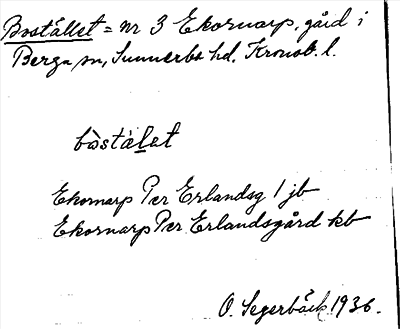 Bostället = nr 3 Ekornarp, gård i
Berga sn, Sunnerbo hd, Kronob. l.
bòstä́let
Ekornarp Per Erlandsg 1 jb
Ekornarp Per Erlandsgård kb
O. Segerbäck 1936.